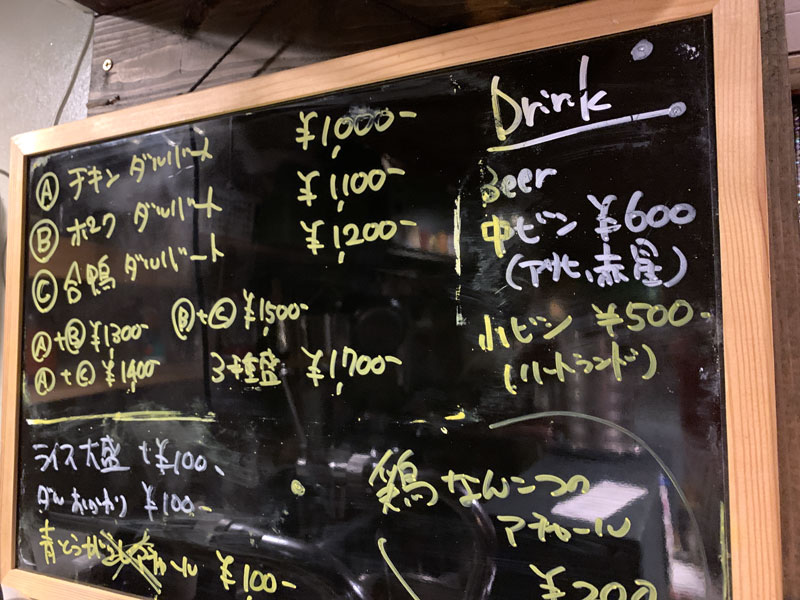 Ⓐ チキン ダルバート ¥1,000-
Ⓑ ポーク ダルバート ¥1,100-
Ⓒ 合鴨 ダルバート ¥1,200-
Ⓐ+Ⓑ ¥1,300-
Ⓑ+Ⓒ ¥1,500-
Ⓐ+Ⓒ ¥1,400-
3種盛 ¥1,700-
ライス大盛 +¥100-
ダルおかわり ¥100-
青とうがらし アチャール ¥100-
Drink
Beer
中ビン ¥600
(アサヒ、赤星)
小ビン ¥500-
(ハートランド)
鶏なんこつの
アチャール
¥200